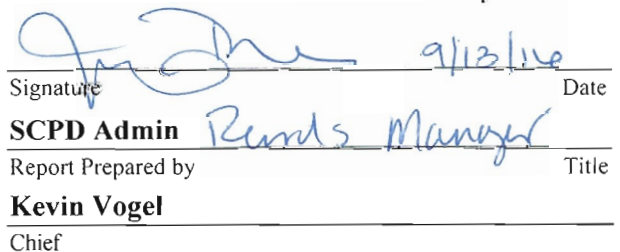 9/13/16
Signature Date
SCPD Admin Records Manager
Report Prepared by Title
Kevin Vogel
Chief